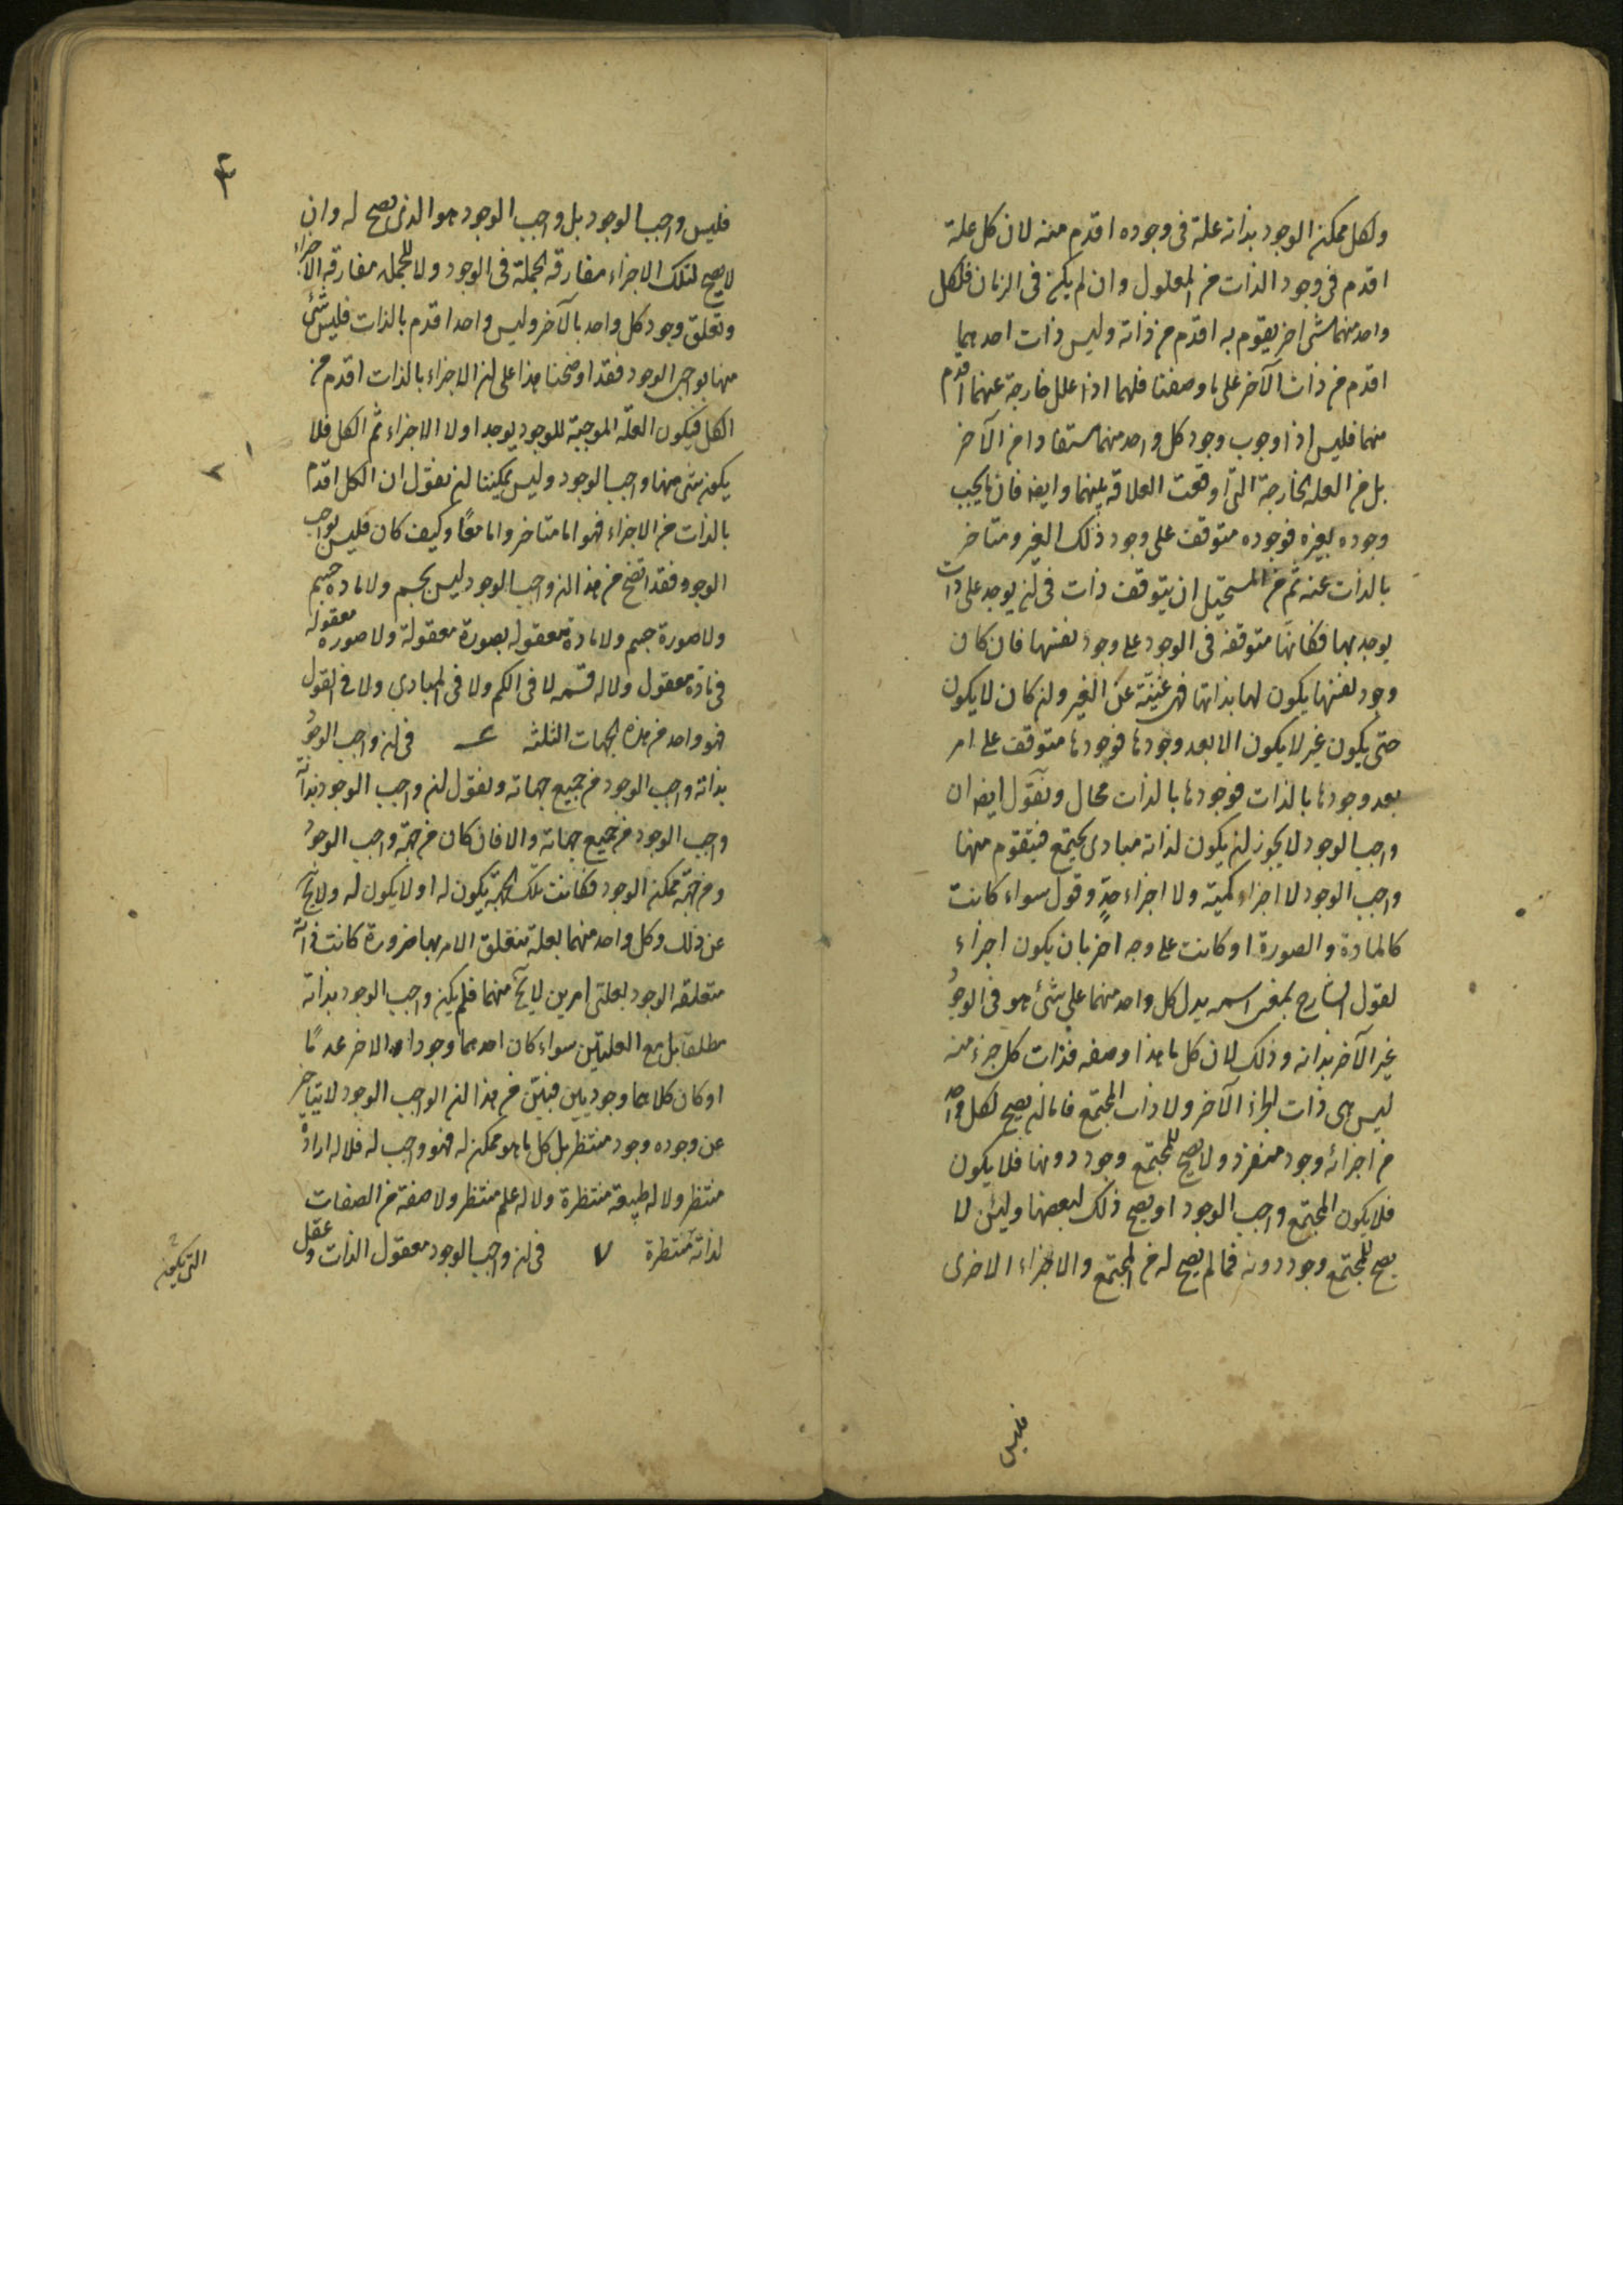 ولكل ممكن الوجود بذاته علة فى وجوده اقدم منه لان كل علة
اقدم فى وجود الذات من المعلول وان لم يكن فى الزمان فلكل
واحد منهما شى اخر يقوم به اقدم من ذاته وليس ذات احدهما
اقدم من ذات الآخر على ما وصفنا فلهما اذا علل خارجة عنهما اقدم
منهما فليس اذا وجوب وجود كل واحد منهما مستفادا من الآخر
بل من العلة الخارجة التى اوقعت العلاقة بينهما وايضا فان ما يجب
وجوده بغيره فوجوده متوقف على وجود ذلك الغير ومتاخر
بالذات عنه ثم من المستحيل ان يتوقف ذات فى ان يوجد على ذات
يوجد بها فكانها متوقفه فى الوجود على وجود نفسها فان كان
وجود نفسها يكون لها بذاتها فهى غنيّة عن الغير وان كان لا يكون
حتى يكون غير لا يكون الا بعد وجودها فوجودها متوقف على امر
بعد وجودها بالذات فوجودها بالذات محال ونقول ايضا ان
واجب الوجود لا يجوز ان يكون لذاته مبادى يجتمع فيتقوم منها
واجب الوجود لا اجزاء كمية ولا اجزاء حدٍ وقول سواء كانت
كالمادة والصورة او كانت على وجه اخر بان يكون اجزاء
لقول الشارح لمعنى اسمه يدل كل واحد منهما على شئ هو فى الوجود
غير الآخر بذاته وذلك لان كل ما هذا وصفه فذات كل جزء منه
ليس هى ذات الجزء الآخر ولا ذات المجتمع فاما ان يصح لكل واحد
من اجزائه وجود منفرد ولا يصح للمجتمع وجود دونها فلا يكون
فلا يكون المجتمع واجب الوجود او يصح ذلك لبعضها ولئن لا
يصح للمجتمع وجود دونه فما لم يصح له من المجتمع والاجزاء الاخرى
فليس
٤
فليس واجب الوجود بل واجب الوجود هو الذى يصح له وان
لا يصح لتلك الاجزاء مفارقه الجملة فى الوجود ولا للجمله مفارقه الاجزاء
وتعلق وجود كل واحد بالآخر وليس واحد اقدم بالذات فليس شئ
منها بواجب الوجود فقد اوضحنا هذا على ان الاجزاء بالذات اقدم من
الكل فيكون العلّه الموجبة للوجود يوجد اولا الاجزاء ثم الكل فلا
يكون شى منها واجب الوجود وليس يمكننا ان نقول ان الكل اقدم
بالذات من الاجزاء فهو اما متاخر واما معًا وكيف كان فليس بواجب
الوجود فقد اتضح من هذا ان واجب الوجود ليس بجسم ولا مادة جسم
ولا صورة جسم ولا مادة معقوله بصورة معقولة ولا صوره معقوله
فى مادة معقول ولا له قسمه لا فى الكم ولا فى المبادى ولا فى القول
فهو واحد من هذه الجهات الثلثه فى ان واجب الوجود
بذاته واجب الوجود من جميع جهاته ونقول ان واجب الوجود بذاته
واجب الوجود من جميع جهاته والا فان كان من جهة واجب الوجود
ومن جهة ممكن الوجود فكانت تلك الجهة يكون له او لا يكون له ولا يخ
عن ذلك وكل واحد منهما بعلة يتعلق الامر بها ضرورة كانت ذاته
متعلقه الوجود بعلتى امرين لا يخ منهما فلم يكن واجب الوجود بذاته
مطلقا بل مع العلتين سواء كان احدهما وجودا والاخر عدمًا
او كان كلاهما وجوديين فبيّن من هذا ان الواجب الوجود لا يتاخر
عن وجوده وجود منتظر بل كل ما هو ممكن له فهو واجب له فلا له ارادة
منتظر ولا له طبيعة منتظرة ولا له علم منتظر ولا صفة من الصفات
لذاته منتظرة ٧ فى ان واجب الوجود معقول الذات وعقل
التى يكون